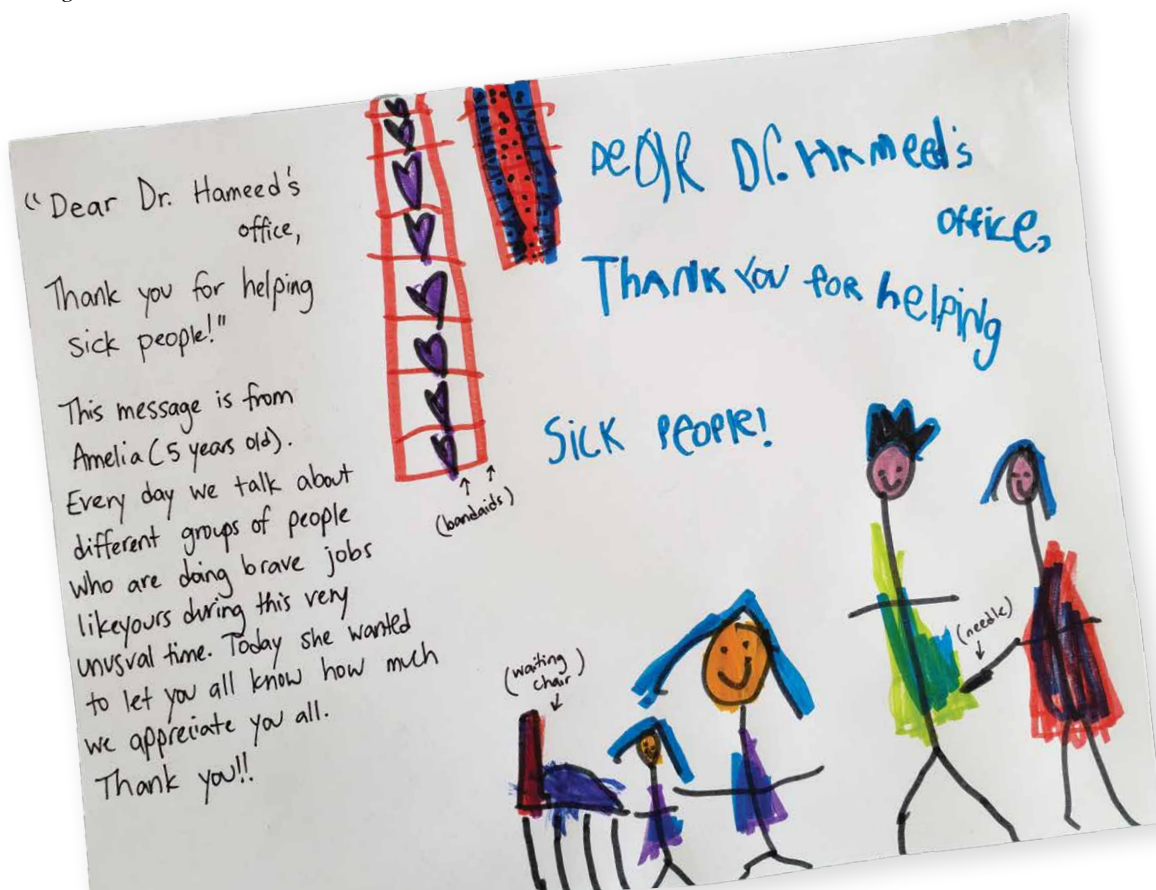 "Dear Dr. Hameed's
office,
Thank you for helping
sick people!"
This message is from
Amelia (5 years old).
Every day we talk about
different groups of people
who are doing brave jobs
like yours during this very
unusual time. Today she wanted
to let you all know how much
we appreciate you all.
Thank you!!
(bandaids)
DeaR Dr. HAmeed's
office,
THANK YOU foR helping
Sick PeoPle!
(waiting
chair)
(needle)